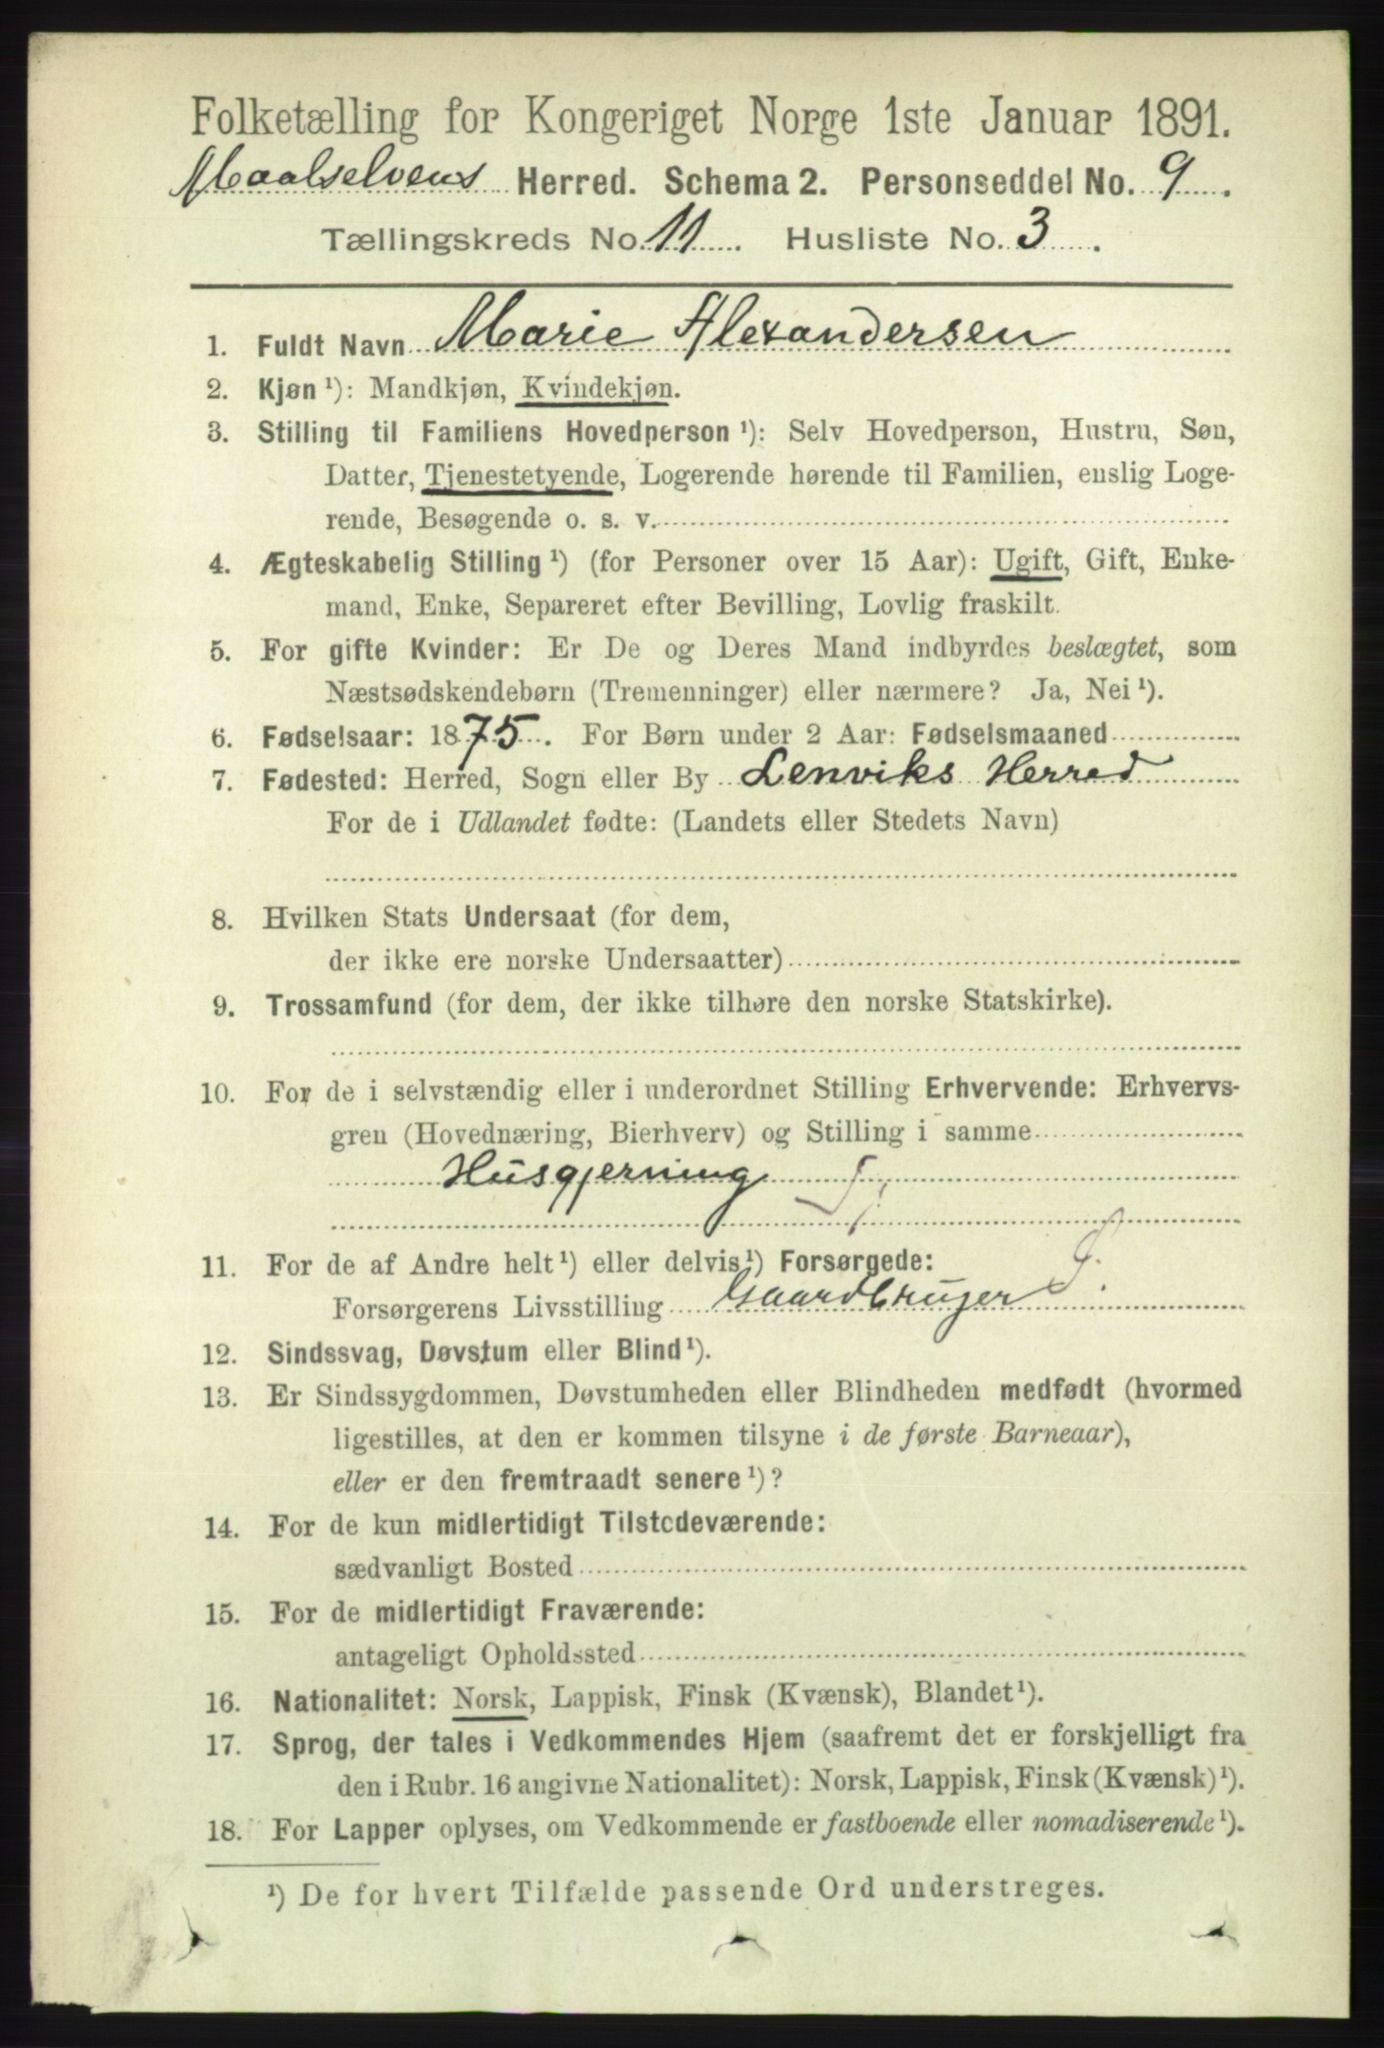 Folketælling for Kongeriget Norge 1ste Januar 1891.
Maalselvens Herred. Schema 2. Personseddel No. 9.
Tællingskreds No. 11. Husliste No. 3.
1. Fuldt Navn Marie Alexandersen
2. Kjøn ¹): Mandkjøn, Kvindekjøn.
3. Stilling til Familiens Hovedperson ¹): Selv Hovedperson, Hustru, Søn,
Datter, Tjenestetyende, Logerende hørende til Familien, enslig Loge-
rende, Besøgende o. s. v.
4. Ægteskabelig Stilling ¹) (for Personer over 15 Aar): Ugift, Gift, Enke-
mand, Enke, Separeret efter Bevilling, Lovlig fraskilt.
5. For gifte Kvinder: Er De og Deres Mand indbyrdes beslægtet, som
Næstsødskendebørn (Tremenninger) eller nærmere? Ja, Nei ¹).
6. Fødselsaar: 1875. For Børn under 2 Aar: Fødselsmaaned
7. Fødested: Herred, Sogn eller By Lenviks Herred
For de i Udlandet fødte: (Landets eller Stedets Navn)
8. Hvilken Stats Undersaat (for dem,
der ikke ere norske Undersaatter)
9. Trossamfund (for dem, der ikke tilhøre den norske Statskirke).
10. For de i selvstændig eller i underordnet Stilling Erhvervende: Erhvervs-
gren (Hovednæring, Bierhverv) og Stilling i samme
Husgjerning
11. For de af Andre helt ¹) eller delvis ¹) Forsørgede:
Forsørgerens Livsstilling Gaardbruger
12. Sindssvag, Døvstum eller Blind ¹).
13. Er Sindssygdommen, Døvstumheden eller Blindheden medfødt (hvormed
ligestilles, at den er kommen tilsyne i de første Barneaar),
eller er den fremtraadt senere ¹)?
14. For de kun midlertidigt Tilstedeværende:
sædvanligt Bosted
15. For de midlertidigt Fraværende:
antageligt Opholdssted
16. Nationalitet: Norsk, Lappisk, Finsk (Kvænsk), Blandet ¹).
17. Sprog, der tales i Vedkommendes Hjem (saafremt det er forskjelligt fra
den i Rubr. 16 angivne Nationalitet): Norsk, Lappisk, Finsk (Kvænsk) ¹).
18. For Lapper oplyses, om Vedkommende er fastboende eller nomadiserende ¹).
¹) De for hvert Tilfælde passende Ord understreges.